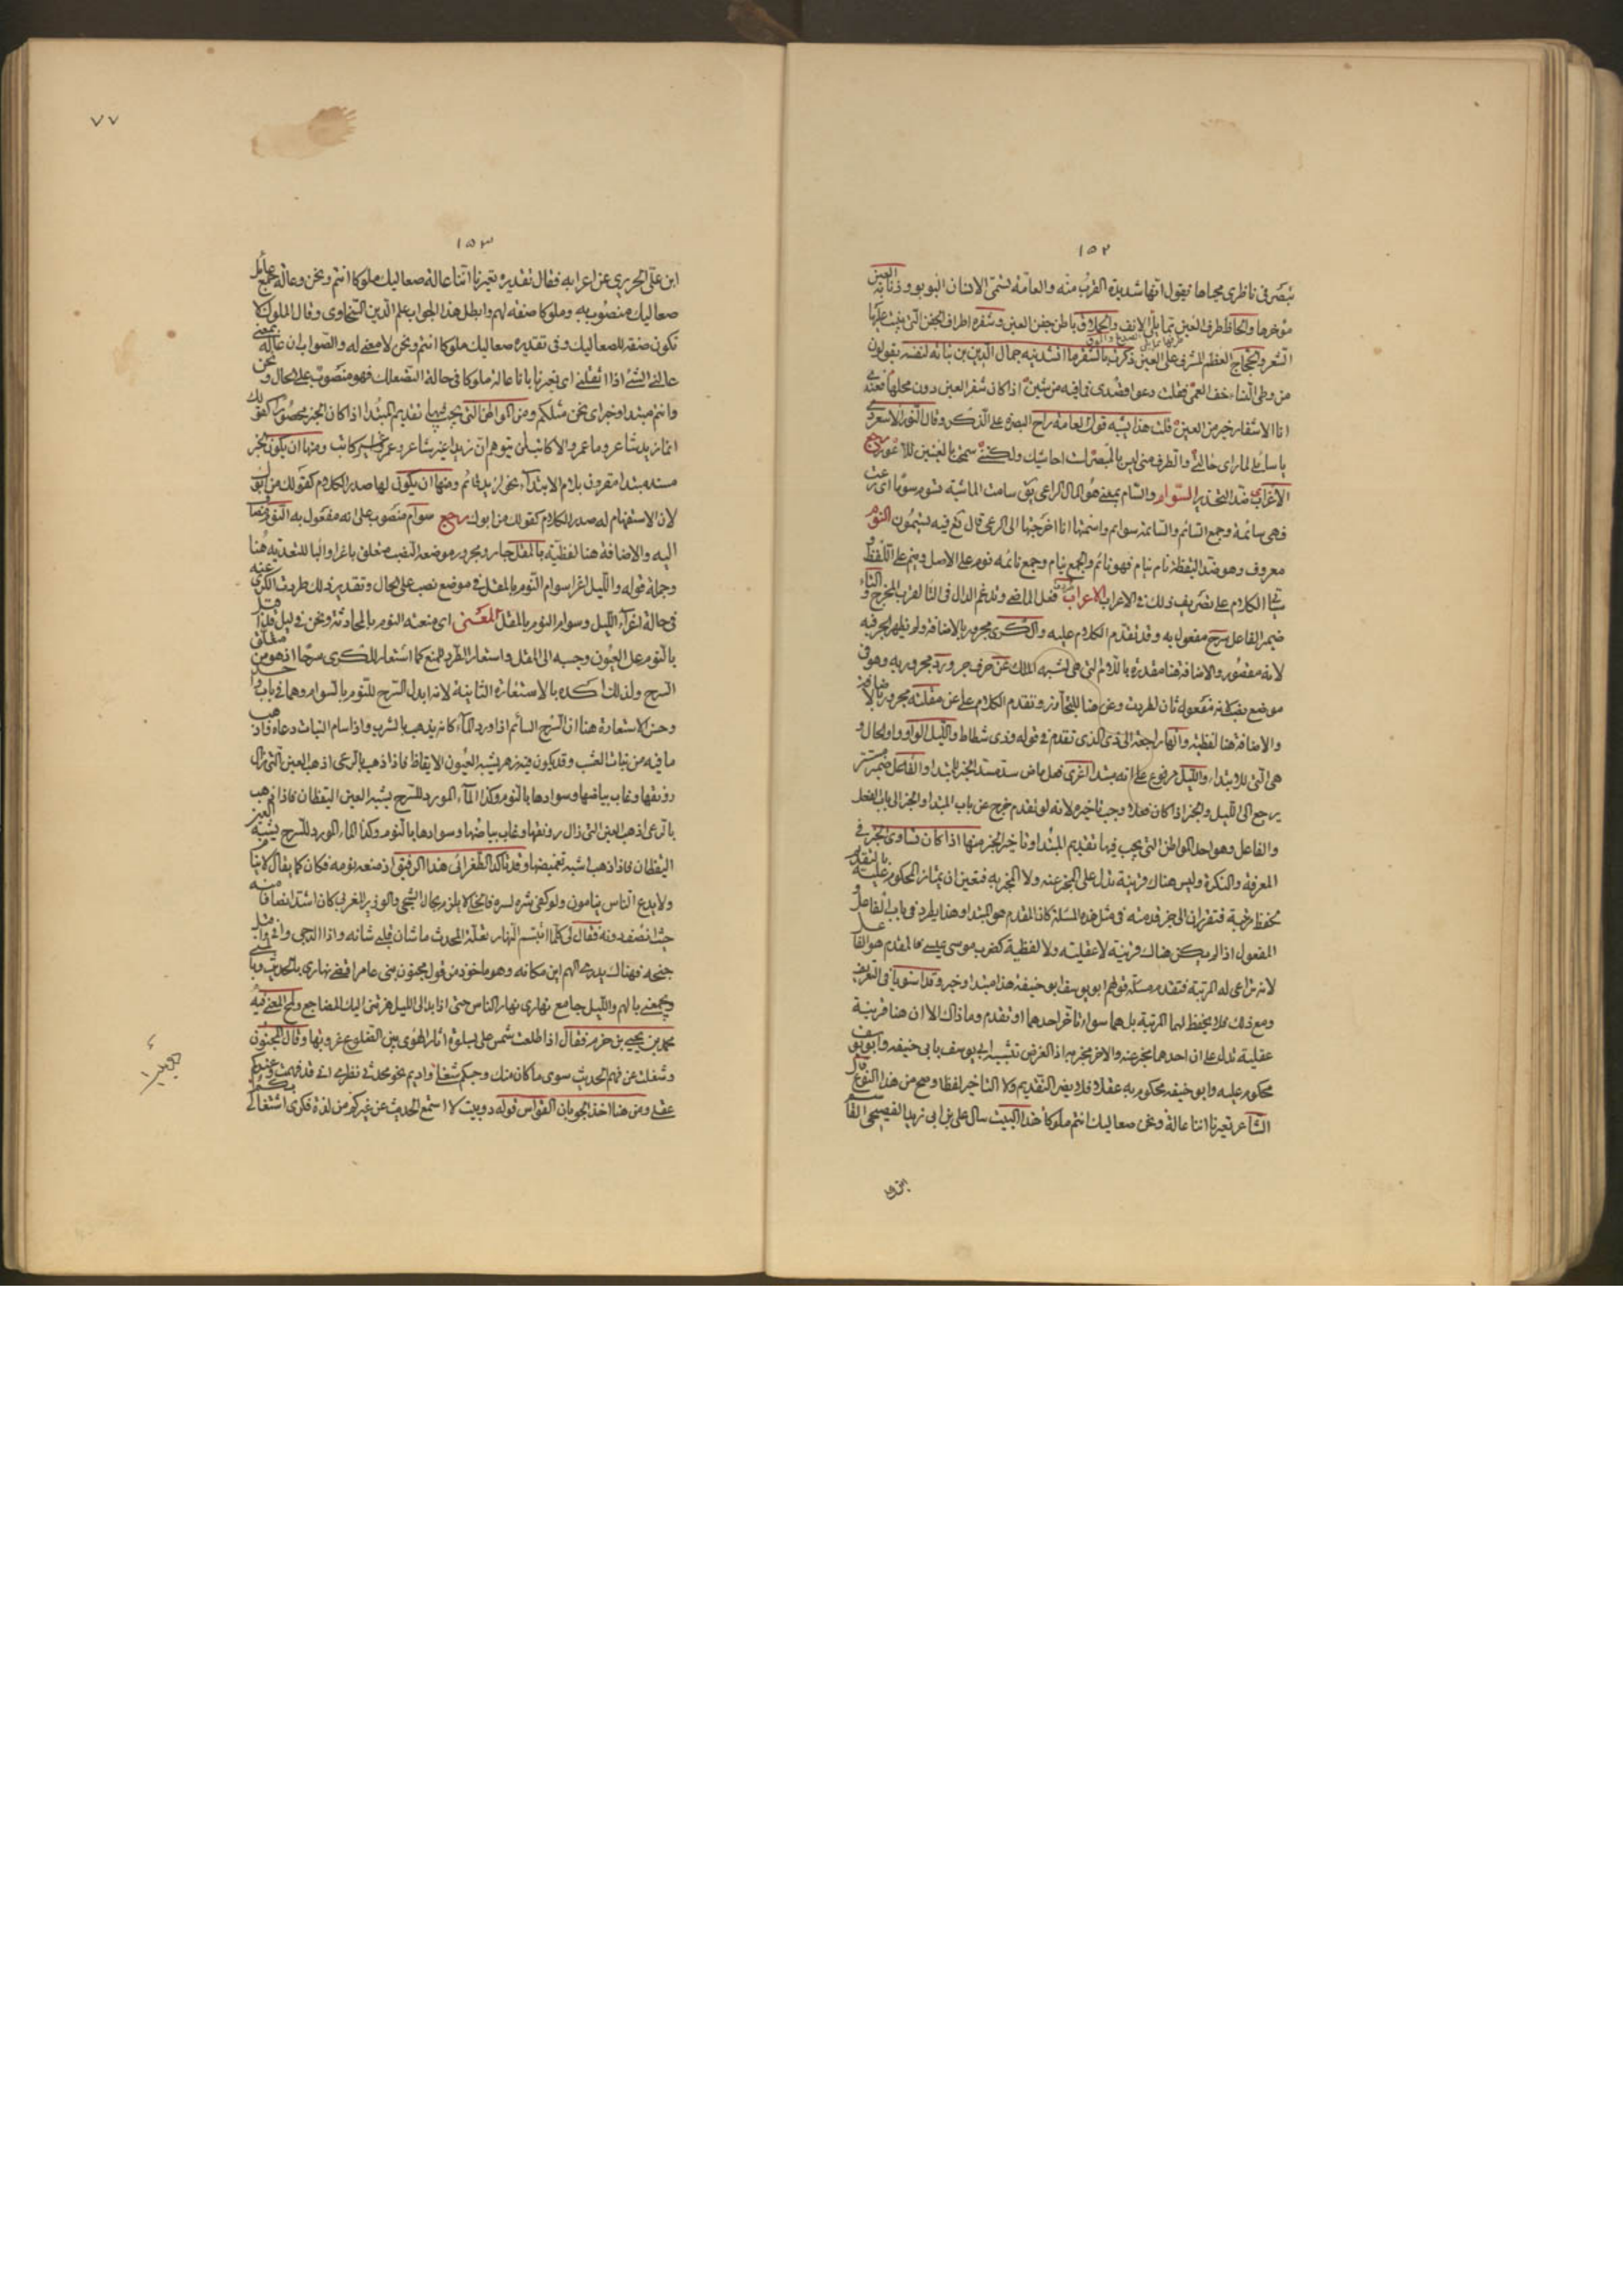 ١٥٢
تبصر في ناظري محياها نقول انها شديدة القرب منه والعامة تسمى الانسان البوبو وذنابة العين
مؤخرها والحاظ طرف العين مما يلى الانف والحملاق باطن جفن العين وشفره اطراف الجفن التى ينبت عليها
الشعر والحجاج العظم المشرف على العين ذكرت بالشفر ما انشدنيه جمال الدين بن نباته لنفسه يقولون
من وطى النساء خف العمى فقلت دعوا قصدى فما فيه من شين اذا كان شفر العين دون محلها فعندى
انا الاشفار خير من العين قلت هذا يشبه قول العامة راح البصر على الذكر وقال النور الاسعردى
يا سائلى لما راى حالتى والطرف منى ليس بالمبصر احاشيك ولكننى سمحت بالعينين للاعور رجع
الاغراء ضد التحذير السوام والسام بمعنى هو المال الراعى يق سامت الماشية تسوم سوما اى رعت
فهى سائمة وجمع السائم والسائمة سوام واسمتها انا اخرجتها الى الرعى قال تع فيه تسيمون النوم
معروف وهو ضد اليقظة نام ينام فهو نائم والجمع نيام وجمع نائمة نوم على الاصل ونيم على اللفظ
الكلام على تصريف ذلك في الاعراب الاعراب فعل الماضى وتدغم الدال فى التا لقرب المخرج والتاء
ضمير الفاعل سرح مفعول به وقد تقدم الكلام عليه والكرى مجرور بالاضافة ولم يظهر الجر فيه
لانه مقصور والاضافة هنا مقدرة باللام التى هى لشبه الملك عن حرف جر ورد مجرور به وهو فى
موضع نصب لانه مفعول ثان لطردت وعن هنا للتجاوز وتقدم الكلام على عن مقلته مجرور بالاضافة
والاضافة هنا لفظية والهاء راجعة الى ذى الذى تقدم في قوله وذى شطاط والليل الواو واو الحال و
هى التى للابتداء والليل مرفوع على انه مبتدا اغرى فعل ماض سد مسد الخبر للمبتدا والفاعل ضمير مستتر
يرجع الى الليل والخبر اذا كان فعلا وجب تاخيره لانه لو تقدم خرج عن باب المبتدا والخبر الى باب الفعل
والفاعل وهو احد المواطن التى يجب فيها تقديم المبتدا وتاخير الخبر منها اذا كان تساوى الجزءين في
المعرفة والنكرة وليس هناك قرينة تدل على المخبر عنه ولا المخبر به فتعين ان يمتاز المحكوم عليه بالتقديم
المفعول اذا لم يكن هناك قرينة لا عقلية ولا لفظية كضرب موسى عيسى فالمقدم هو الفاعل
لانه تراعى له الرتبة فتقدم مسئلة قولهم ابو يوسف ابو حنيفة هذا مبتدا وخبر وقد استويا فى التعريف
ومع ذلك فلا يحفظ لهما الرتبة بل هما سواء تاخر احدهما او تقدم وما ذاك الا ان هنا قرينة
عقلية تدل على ان احدهما مخبر عنه والاخر مخبر به اذ الغرض تشبيه ابى يوسف بابى حنيفه وابو يوسف
محكوم عليه وابو حنيفه محكوم به عقلا فلا يضر التقديم ولا التاخير لفظا وصح من هذا النوع قال
الشاعر تعيرنا اننا عالة ونحن صعاليك انتم ملوكا هذا البيت سال على بن ابى زيد الفصيحى القاسم
٧٧
١٥٣
ابن على الحريرى عن اعرابه فقال تقديره تعيرنا اننا عالة صعاليك ملوكا انتم ونحن وعالة جمع عائل
صعاليك منصوب به وملوكا صفة لهم وابطل هذا الجواب علم الدين السخاوى وقال الملوك لا
تكون صفة للصعاليك وفى تقديره صعاليك ملوكا انتم ونحن لا معنى له والصواب ان عالة بمعنى
عالنى الشئ اذا اثقلنى اى تعيرنا بانا عالة ملوكا فى حالة التصعلك فهو منصوب على الحال ونحن
وانتم مبتدا وخبر اى نحن مثلكم ومن المواطن التى يجب فيها تقديم المبتدا اذا كان الخبر محصورا كقولك
انما زيد شاعر وما عمرو الا كاتب لئن يتوهم ان زيدا غير شاعر وعمرو غير كاتب ومنها ان يكون الخبر
مسند مبتدا مقرون بلام الابتداء نحو لزيد قائم ومنها ان يكون لها صدر الكلام كقولك من ابوك
لان الاستفهام له صدر الكلام كقولك من ابوك رجع سوام منصوب على انه مفعول به النوم مضاف
اليه والاضافة هنا لفظية بالمقل جار ومجرور موضعه النصب متعلق باغرا والبا للتعدية هنا
وجملة قوله والليل اغرا سوام النوم بالمقل فى موضع نصب على الحال وتقدير ذلك طردت الكرى عنه
فى حالة اغراء الليل وسوام النوم بالمقل المعنى اى منعته النوم بالمحادثة ونحن في ليل
بالنوم على العيون وجبه الى المقل واستعار الطرد للمنع كما استعار للكرى سرحا اذ هو من
السرح ولذلك اكده بالاستعارة الثانية لانه ابدل السرح للنوم بالسوام وهما فى باب واحد
وحسن الاستعارة هنا ان السرح السائم اذا ورد الماء كانه يذهب بالشرب واذا سام النبات رعاه واذهب
ما فيه من نبات العشب وقد يكون فيه زهر يشبه العيون الايقاظ فاذا ذهب بالرعى اذهب العين التى زال
رونقها وغاب بياضها وسوادها بالنوم وكذا الماء المورد للسرح يشبه العين اليقظان فاذا ذهب
بالرعى اذهب العين التى زال رونقها وغاب بياضها وسوادها بالنوم وكذا الماء المورد للسرح يشبه العين
اليقظان فاذا ذهب اشبه تغميضها وقد ناكد الطغرائى هذا الرفيق اذ منعه نومه فكان كما يقال لا ينام
ولا يدع الناس ينامون ولو كفى شره لسره
جنحه فهناك يدرى الهم اين مكانه وهو ماخوذ من قول مجنون بنى عامر اقضى نهارى بالحديث وبالمنى
ويجمعنى بالهم والليل جامع نهارى نهار الناس حتى اذا بدا لى الليل هزتنى اليك المضاجع ولمح المعنى فيه
محمد بن يحيى بن حزم فقال اذا طلعت شمس على بسلوة اثار الهوى بين الضلوع غروبها وقال المجنون
وشغلت عن فهم الحديث سوى ما كان منك وحبكم شغلى واديم نحو محدثى نظرى ان قد فهمت وعندكم
عقلى ومن هنا اخذ الجوبان القواس قوله دوبيت لا استمع الحديث عن غيركم من لذة فكرى اشتغالى